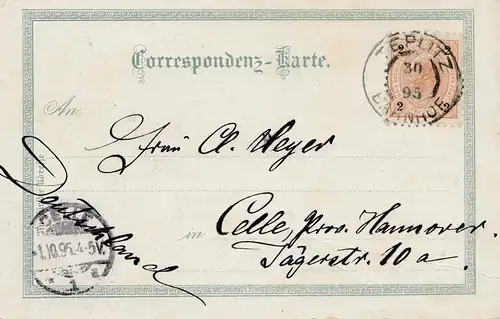 Correspondenz-Karte.
TEPLITZ
30
95
BAHNHOF
2
An
Frau Cl. Meyer
in Celle, Prov. Hannover.
Jägerstr. 10 a.
Deutschland
1.10.95.4-5V.
1